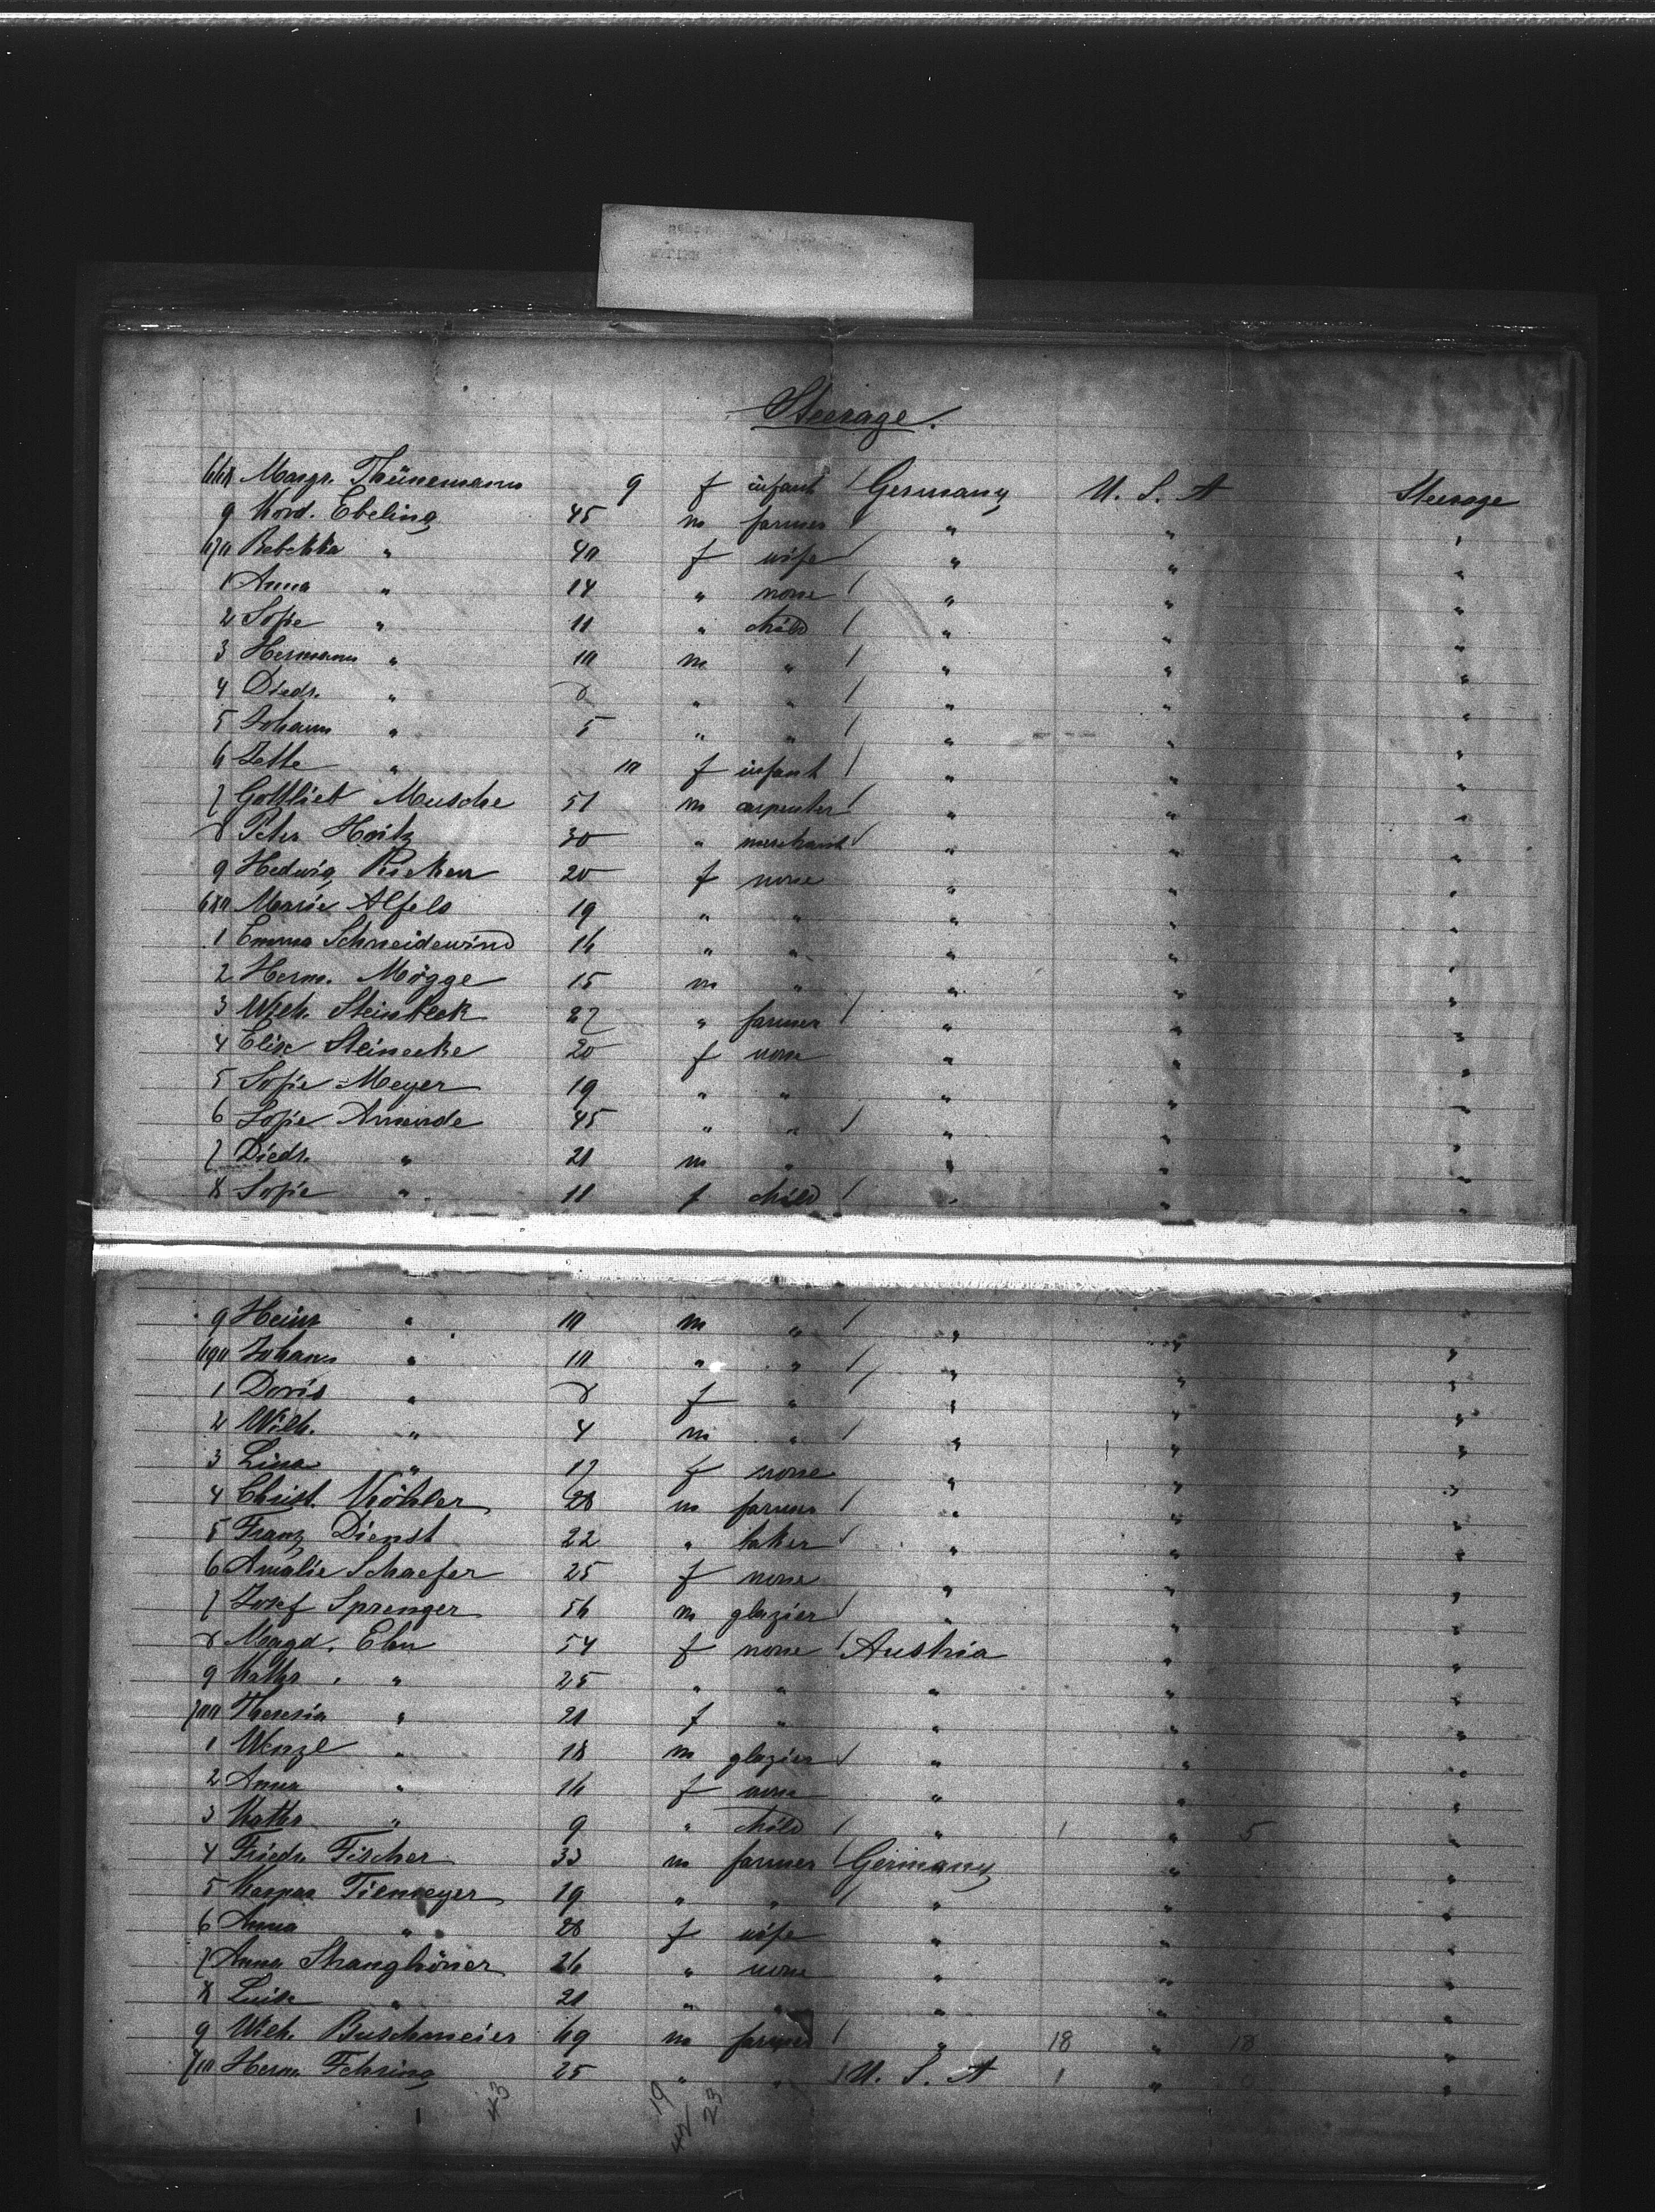 Steerage.
668 Margr. Thünemann 9 f infant / Germany U. S. A Steerage
9 Kord. Ebeling 45 m farmer / " " "
670 Rebekka " 40 f wife / " " "
1 Anna " 14 " none / " " "
2 Sofie " 11 " child / " " "
3 Hermann " 10 m " / " " "
4 Diedr. " 8 " " / " " "
5 Johann " 5 " " / " " "
6 Jette " 10 f infant / " " "
7 Gottlieb Musche 51 m carpenter / " " "
8 Peter 30 " merchant / " " "
9 Hedwig Ricken 20 f none " " "
680 Marie Alfels 19 " " " " "
1 Emma Schneidewind 16 " " " " "
2 Herm. Mögge 15 m " " " "
3 Wilh. Steinbeck 27 " farmer / " " "
4 Elise Steinecke 20 f none " " "
5 Sofie Meyer 19 " " " " "
6 Sofie Amende 45 " " / " " "
7 Diedr. " 21 m " " " "
8 Sofie " 11 f child / " " "
9 Heinr " 10 m " / " " "
690 Johann " 10 " " / " " "
1 Doris " 8 f " / " " "
2 Wilh. " 4 m " / " " "
3 Lina " 17 f none " " "
4 Christ. Köhler 28 m farmer / " " "
5 Franz Dienst 22 " baker / " " "
6 Amalie Schaefer 25 f none " " "
7 Josef Sprenger 56 m glazier / " " "
8 Magd. Eben 54 f none / Austria " "
9 Kathr. " 25 " " " " "
700 Theresia " 21 f " " " "
1 Wenzl " 18 m glazier / " " "
2 Anna " 16 f none " " "
3 Kathr " 9 " child / " 1 " 5 "
4 Friedr. Fischer 33 m farmer / Germany " "
5 Kaspar Tiemeyer 19 " " / " " "
6 Anna " 28 f wife " " "
7 Anna Stranghöner 26 " none " " "
8 Luise " 21 " " " " "
9 Wilh. Buschmeier 69 m farmer / " 18 " 18 "
710 Herm. Fehring 25 " " / U. S. A 1 " 0 "
43 19 23
42